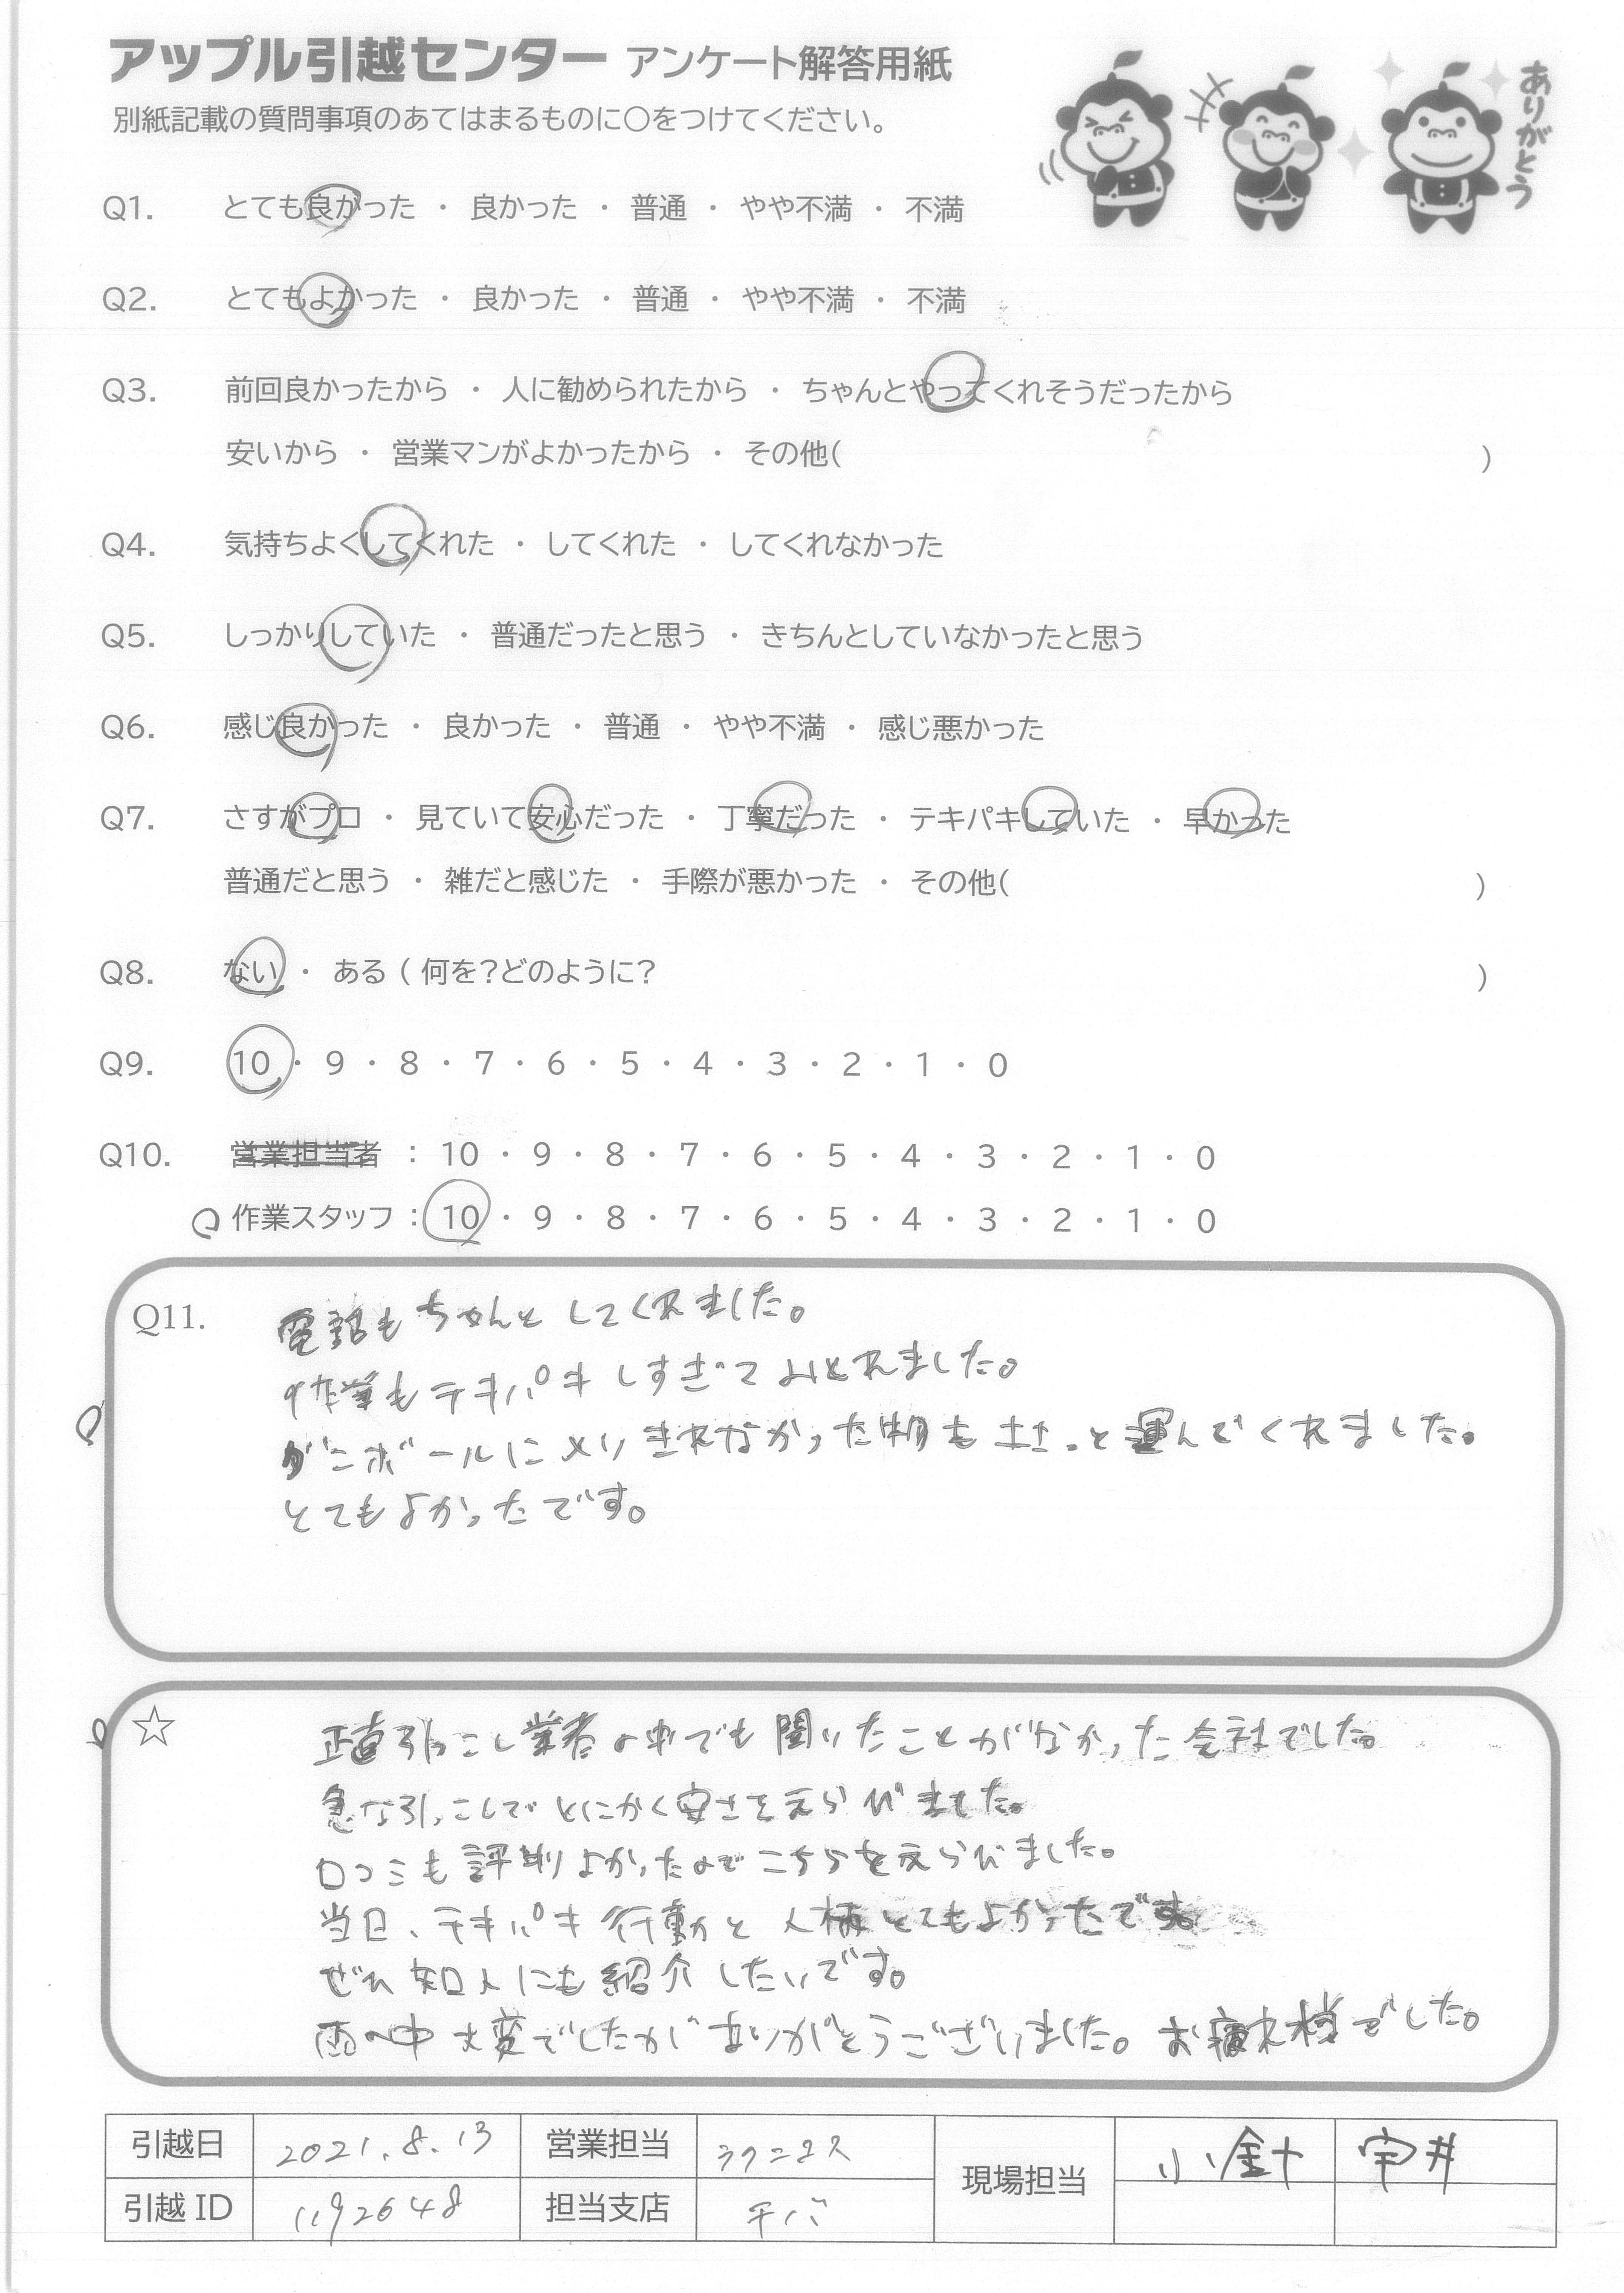 アップル引越センター アンケート解答用紙
別紙記載の質問事項のあてはまるものに○をつけてください。
ありがとう
Q1. とても良かった ・ 良かった ・ 普通 ・ やや不満 ・ 不満
Q2. とてもよかった ・ 良かった ・ 普通 ・ やや不満 ・ 不満
Q3. 前回良かったから ・ 人に勧められたから ・ ちゃんとやってくれそうだったから
安いから ・ 営業マンがよかったから ・ その他( )
Q4. 気持ちよくしてくれた ・ してくれた ・ してくれなかった
Q5. しっかりしていた ・ 普通だったと思う ・ きちんとしていなかったと思う
Q6. 感じ良かった ・ 良かった ・ 普通 ・ やや不満 ・ 感じ悪かった
Q7. さすがプロ ・ 見ていて安心だった ・ 丁寧だった ・ テキパキしていた ・ 早かった
普通だと思う ・ 雑だと感じた ・ 手際が悪かった ・ その他( )
Q8. ない ・ ある ( 何を?どのように? )
Q9. 10 ・ 9 ・ 8 ・ 7 ・ 6 ・ 5 ・ 4 ・ 3 ・ 2 ・ 1 ・ 0
Q10. 営業担当者 : 10 ・ 9 ・ 8 ・ 7 ・ 6 ・ 5 ・ 4 ・ 3 ・ 2 ・ 1 ・ 0
作業スタッフ : 10 ・ 9 ・ 8 ・ 7 ・ 6 ・ 5 ・ 4 ・ 3 ・ 2 ・ 1 ・ 0
Q11. 電話もちゃんとしてくれました。
作業もテキパキしすぎてみとれました。
ダンボールに入りきれなかった物もささっと運んでくれました。
とてもよかったです。
☆ 正直引っこし業者の中でも聞いたことがなかった会社でした。
急な引っこしでとにかく安さをえらびました。
口コミも評判よかったのでこちらをえらびました。
当日、テキパキ行動と人柄とてもよかったです。
ぜひ知人にも紹介したいです。
雨の中大変でしたがありがとうございました。お疲れ様でした。
引越日 2021.8.13 営業担当 現場担当 小針 宇井
引越 ID 1192648 担当支店 千バ